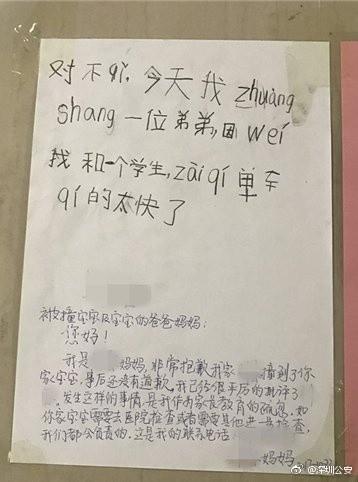 对不qǐ,今天我zhuàng
shang一位弟弟,因wéi
找和一个学生,zài qí单车
qí的太快了
被撞宝宝及宝宝的爸爸妈妈:
您好!
我是 妈妈,非常抱歉我家 撞到了你
家宝宝,事后还没有道歉。我已给很严厉的批评了
。发生这样的事情是我作为家长教育的疏忽,如
你家宝宝需要去医院检查或者需要其他进一步检查,
我们都会负责的,这是我的联系电话
妈妈
@深圳公安